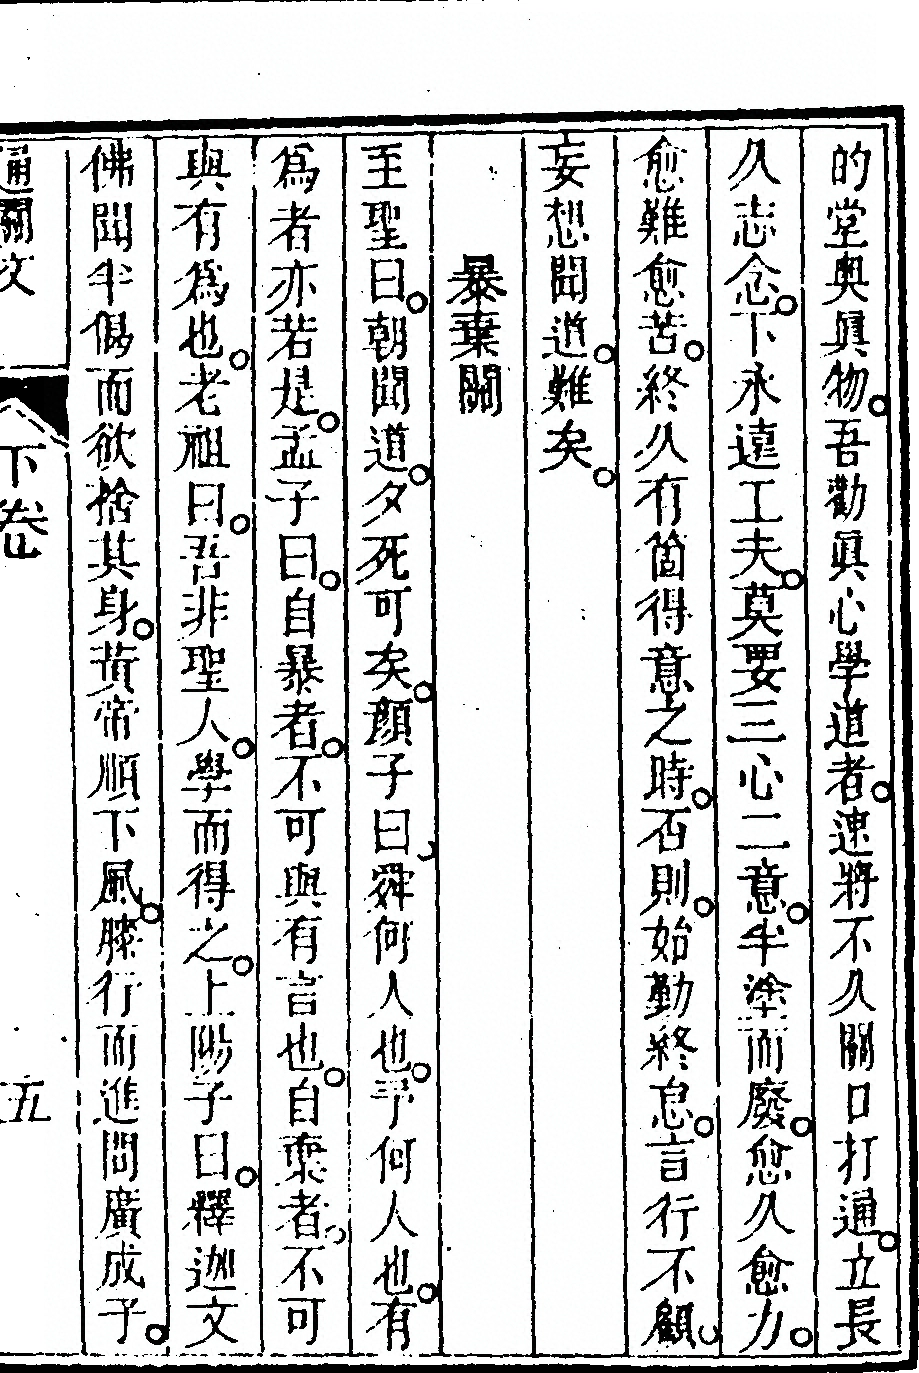 的堂奧眞物。吾勸眞心學道者。速將不久關口打通。立長
久志念。下永遠工夫。莫要三心二意。半塗而廢。愈久愈力。
愈難愈苦。終久有箇得意之時。否則。始勤終怠。言行不顧。
妄想聞道。難矣。
暴棄關
至聖曰。朝聞道。夕死可矣。顏子曰、舜何人也。予何人也。有
爲者亦若是。孟子曰。自暴者。不可與有言也。自棄者。不可
與有爲也。老祖曰。吾非聖人。學而得之。上陽子曰。釋迦文
佛聞半偈而欲捨其身。黃帝順下風。膝行而進問廣成子。
通關文
下卷
五